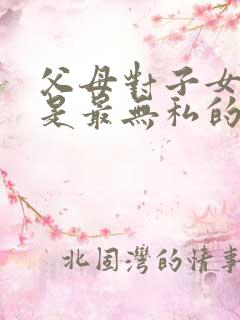 父母對子女
是最無私的
北固灣的情事